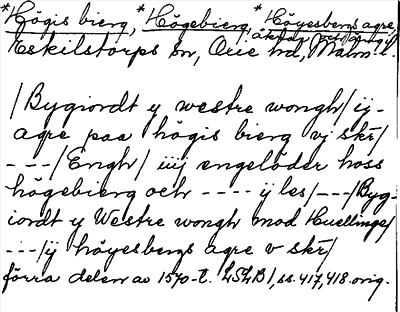 *Högis bierg, *Högebierg, *Höyesbergs agre,
åkrar och äng i
Eskilstorps sn, Oxie hd, Malm. l.
/Bygiordt y westre wongh/ ij-
agre paa högis bierg vj skr/
---/Engh/ iiij engelöder hoss
högebierg och ---- ij les/---/Byg-
iordt y Westre wongh mod Huellinge/
---/ij höyesbergs agre v skr/
förra delen av 1570-t. LSLB I, ss. 417, 418. orig.